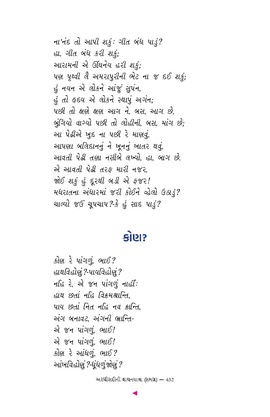 ના'નંદ તો આપી શકું: ગીત બંધ પાડું?
હા, ગીત બંધ કરી શકું;
આરામની એ ઊંઘનેવ હરી શકું;
પણ પૃથ્વી લૈ અમરાપુરીની ભેટ ના જ દઈ શકું;
હું નવન એ લોકને આંજું સુપંન,
હું તો હૃદય એ લોકને સ્થાપું અગંન;
પછી તો ક્ષણે ક્ષણ આગ ને, બસ, આગ છે.
બુંગિયો વાગ્યો પછી તો લોહીની, બસ, માંગ છે;
આ પેઢીએ ખુદ ના પછી રે માણવું,
આપણા બલિદાનનું ને ખૂનનું ખાતર થવું.
આવતી પેઢી તણા નસીબે લખ્યો, હા, બાગ છે.
એ આવતી પેઢી તરફ મારી નજર,
જોઈ શકું હું દૂરથી બડી એ ફજર!
મધરાતના અંધારમાં જરી કોઈને વ્હેલો ઉઠાડું?
ચાલ્યો જઉં ચૂપચાપ?-કે હું સાદ પાડું?
કોણ?
કોણ રે પાંગળું, ભાઈ?
હાથવિહોણું?-પાવવિહોણું?
નહિ રે, એ જન પાંગળું નાહીંઃ
હાથ છતાં નહિ વિક્રમશ્રાન્તિ,
પાવ છતાં નિત નહિ નવ ક્રાન્તિ,
અંગ બનાવટ, અંગની ભ્રાન્તિ-
એ જન પાંગળું, ભાઈ!
એ જન પાંગળું, ભાઈ!
કોણ રે આંધળું, ભાઈ?
આંખવિહોણું?-ધૂંધળુંજોણું?
અરધીસદીની વાચનયાત્રા (સમગ્ર) — 432